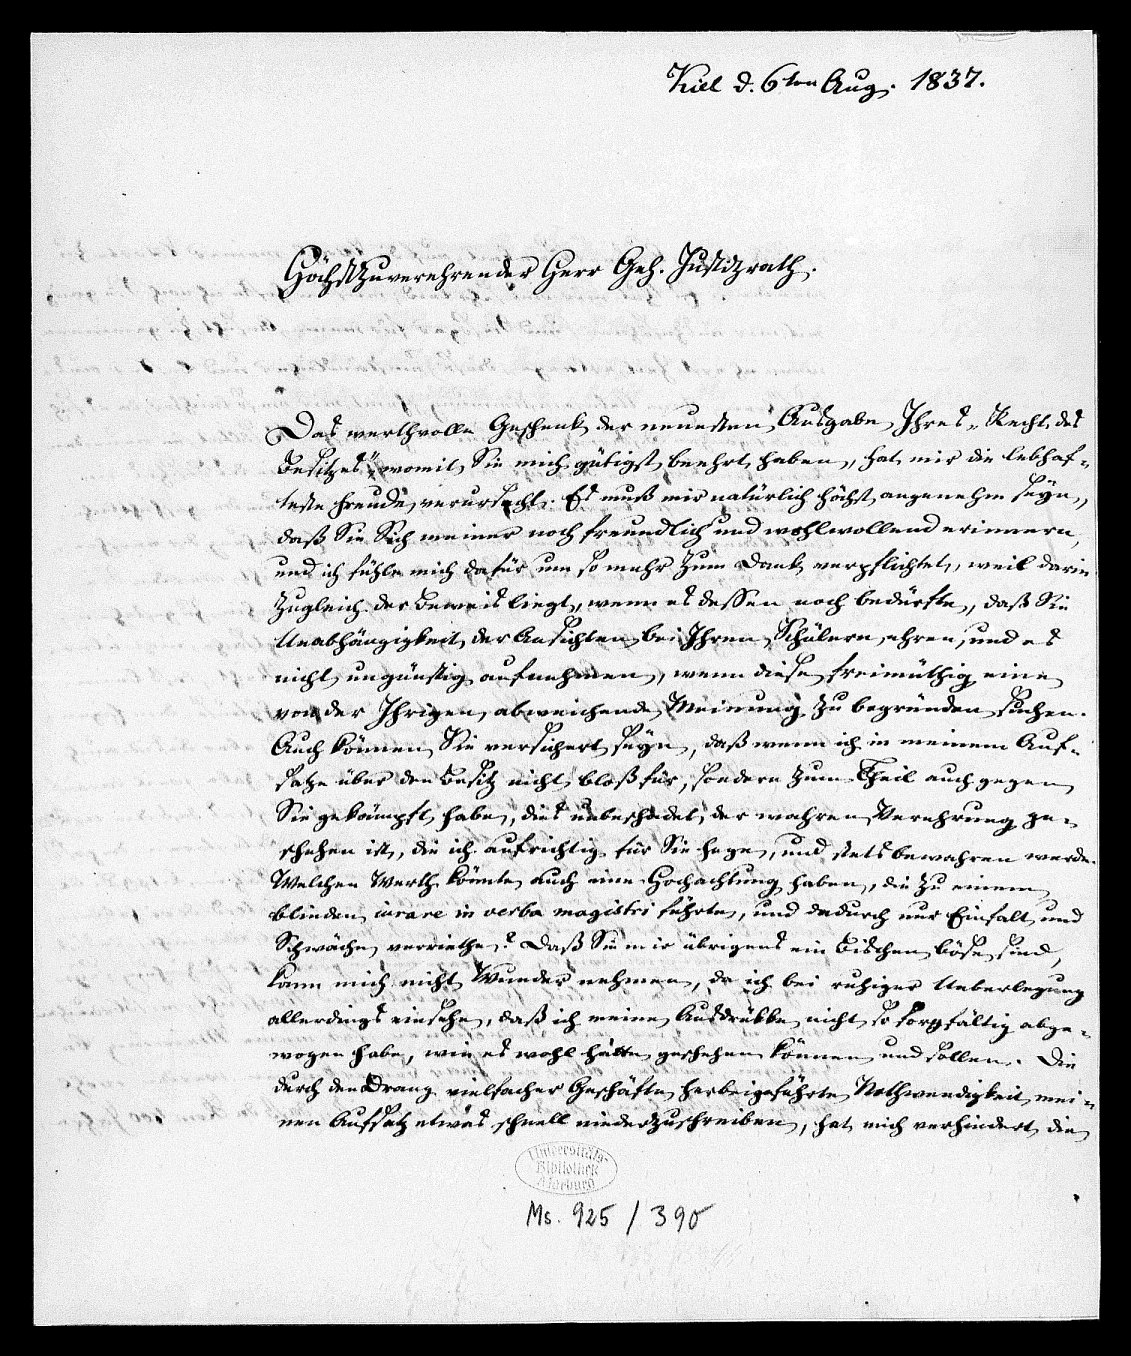 Kiel d. 6ten Aug. 1837.
Höchstzuverehrender Herr Geh. Justizrath.
Das werthvolle Geschenk der neuesten Ausgabe Ihres „Recht des
Besitzes“, womit Sie mich gütigst beehrt haben, hat mir die lebhaf-
teste Freude verursacht. Es muß mir natürlich höchst angenehm seyn,
daß Sie Sich meiner noch freundlich und wohlwollend erinnern,
und ich fühle mich dafür um so mehr zum Dank verpflichtet, weil darin
zugleich der Beweis liegt, wenn es dessen noch bedürfte, daß Sie
Unabhängigkeit der Ansichten bei Ihren Schülern ehren, und es
nicht ungünstig aufnehmen, wenn diese freimüthig eine
von der Ihrigen abweichende Meinung zu begründen suchen.
Auch können Sie versichert seyn, daß wenn ich in meinem Auf-
satze über den Besitz nicht bloß für, sondern zum Theil auch gegen
Sie gekämpft habe, dies unbeschadet der wahren Verehrung ge-
schehen ist, die ich aufrichtig für Sie hege, und stets bewahren werde.
Welchen Werth könnte auch eine Hochachtung haben, die zu einem
blinden iurare in verba magistri führte, und dadurch nur Einfalt und
Schwäche verriethe? Daß Sie mir übrigens ein Bischen böse sind,
kann mich nicht Wunder nehmen, da ich bei ruhiger Ueberlegung
allerdings einsehe, daß ich meine Ausdrükke nicht so sorgfältig abge-
wogen habe, wie es wohl hätte geschehen können und sollen. Die
durch den Drang vielfacher Geschäfte herbeigeführte Nothwendigkeit, mei-
nen Aufsatz etwas schnell niederzuschreiben, hat mich verhindert, die
Universitäts-
Bibliothek
Marburg
Ms. 925 / 390